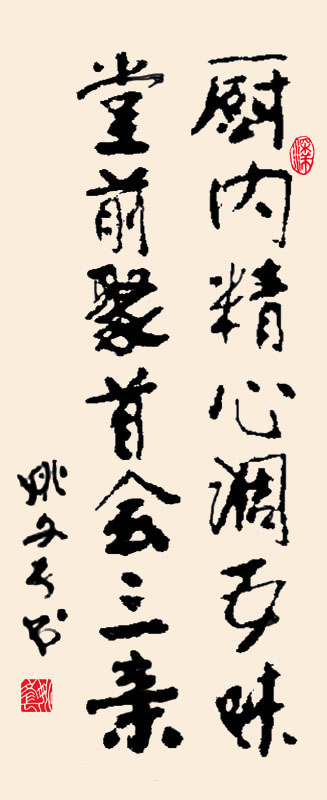 厨内精心调五味
堂前聚首会三亲